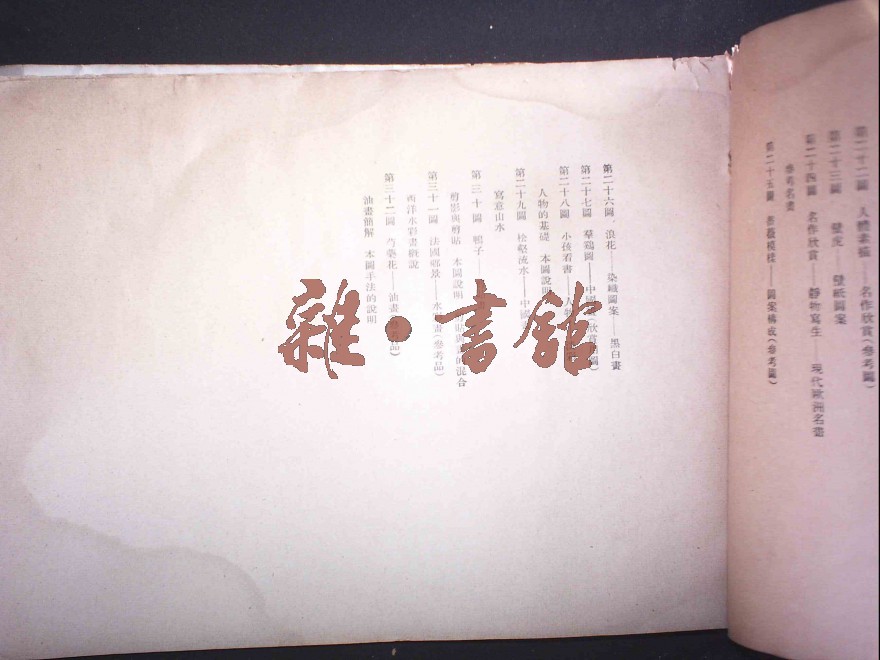 第二十二圖 人體素描——名作欣賞(參考圖)
第二十三圖 壁虎——壁紙圖案
第二十四圖 名作欣賞——靜物寫生——現代歐洲名畫
參考名畫
第二十五圖 薔薇模樣——圖案構成(參考圖)
第二十六圖 浪花——染織圖案——黑白畫
第二十七圖 羣鷄圖——中國
第二十八圖 小孩看書——人物
人物的基礎 本圖說明
第二十九圖 松壑流水——中國
寫意山水
第三十圖 鴨子——
剪影與剪貼 本圖說明 的混合
第三十一圖 法國鄉景——水 畫(參考品)
西洋水彩畫概說
第三十二圖 芍藥花——油畫 品)
油畫簡解 本圖手法的說明
雜·書舘